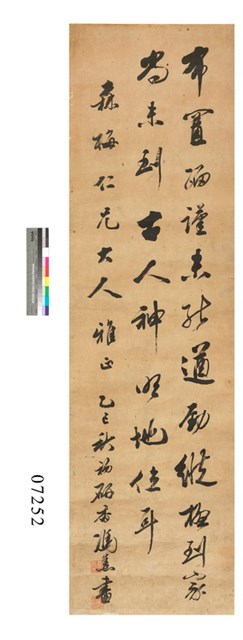 布置西謹未能遒勁縱極到家
尚未到古人神明地位耳
森梅仁兄大人雅正 乙巳秋初研香馮譽書
07252